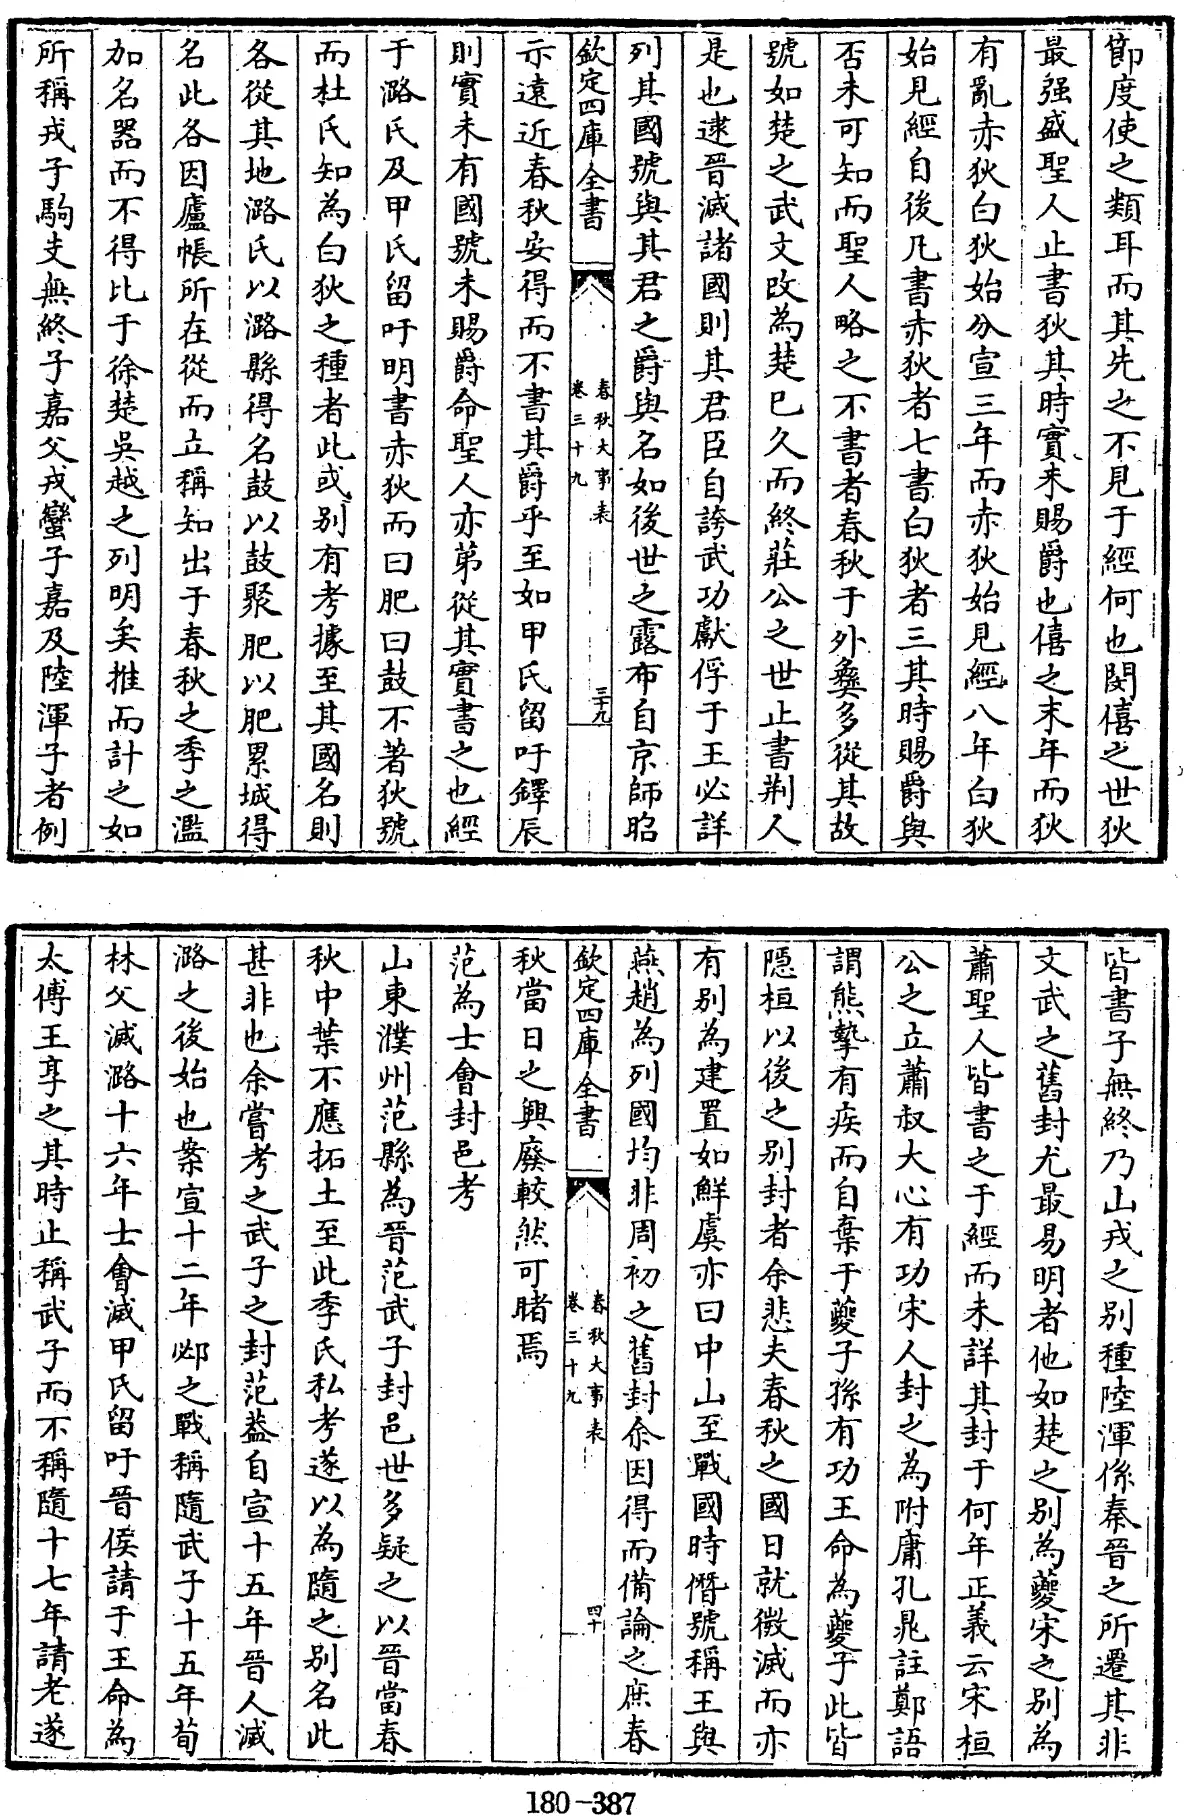 節度使之類耳而其先之不見于經何也閔僖之世狄
最强盛聖人止書狄其時實未賜爵也僖之末年而狄
有亂赤狄白狄始分宣三年而赤狄始見經八年白狄
始見經自後凡書赤狄者七書白狄者三其時賜爵與
否未可知而聖人略之不書者春秋于外彝多從其故
號如楚之武文改為楚已久而終莊公之世止書荆人
是也逮晉滅諸國則其君臣自誇武功獻俘于王必詳
列其國號與其君之爵與名如後世之露布自京師昭
欽定四庫全書
春秋大事表
卷三十九
三十九
示遠近春秋安得而不書其爵乎至如甲氏留吁鐸辰
則實未有國號未賜爵命聖人亦第從其實書之也經
于潞氏及甲氏留吁明書赤狄而曰肥曰鼓不著狄號
而杜氏知為白狄之種者此或別有考據至其國名則
各從其地潞氏以潞縣得名鼓以鼓聚肥以肥累城得
名此各因廬帳所在從而立稱知出于春秋之季之濫
加名器而不得比于徐楚吳越之列明矣推而計之如
所稱戎子駒支無終子嘉父戎蠻子嘉及陸渾子者例
皆書子無終乃山戎之別種陸渾係秦晉之所遷其非
文武之舊封尤最易明者他如楚之別為夔宋之別為
蕭聖人皆書之于經而未詳其封于何年正義云宋桓
公之立蕭叔大心有功宋人封之為附庸孔晁註鄭語
謂熊摯有疾而自棄于夔子孫有功王命為夔子此皆
隱桓以後之別封者余悲夫春秋之國日就微滅而亦
有別為建置如鮮虞亦曰中山至戰國時僭號稱王與
燕趙為列國均非周初之舊封余因得而備論之庶春
欽定四庫全書
春秋大事表
卷三十九
四十
秋當日之興廢較然可睹焉
范為士會封邑考
山東濮州范縣為晉范武子封邑世多疑之以晉當春
秋中葉不應拓土至此季氏私考遂以為隨之別名此
甚非也余嘗考之武子之封范蓋自宣十五年晉人滅
潞之後始也案宣十二年邲之戰稱隨武子十五年荀
林父滅潞十六年士會滅甲氏留吁晉侯請于王命為
太傅王享之其時止稱武子而不稱隨十七年請老遂
180-387